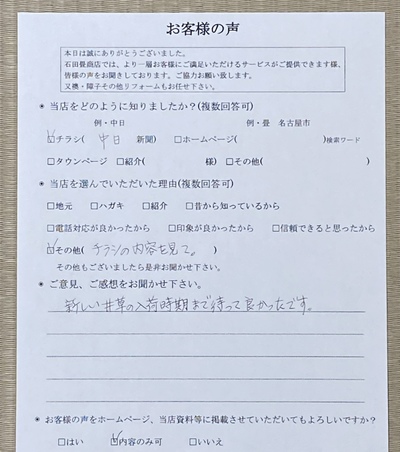 お客様の声
本日は誠にありがとうございました。
石田畳商店では、より一層お客様にご満足いただけるサービスがご提供できます様、
皆様の声をお聞きしております。ご協力お願い致します。
又襖・障子その他リフォームもお任せ下さい。
* 当店をどのように知りましたか?(複数回答可)
例・中日 例・畳 名古屋市
☑チラシ( 中日 新聞) □ホームページ( )検索ワード
□タウンページ □紹介( 様) □その他( )
* 当店を選んでいただいた理由(複数回答可)
□地元 □ハガキ □紹介 □昔から知っているから
□電話対応が良かったから □印象が良かったから □信頼できると思ったから
☑その他( チラシの内容を見て。 )
その他もございましたら是非お聞かせ下さい。
* ご意見、ご感想をお聞かせ下さい。
新しい井草の入荷時期まで待って良かったです。
* お客様の声をホームページ、当店資料等に掲載させていただいてもよろしいですか?
□はい ☑内容のみ可 □いいえ